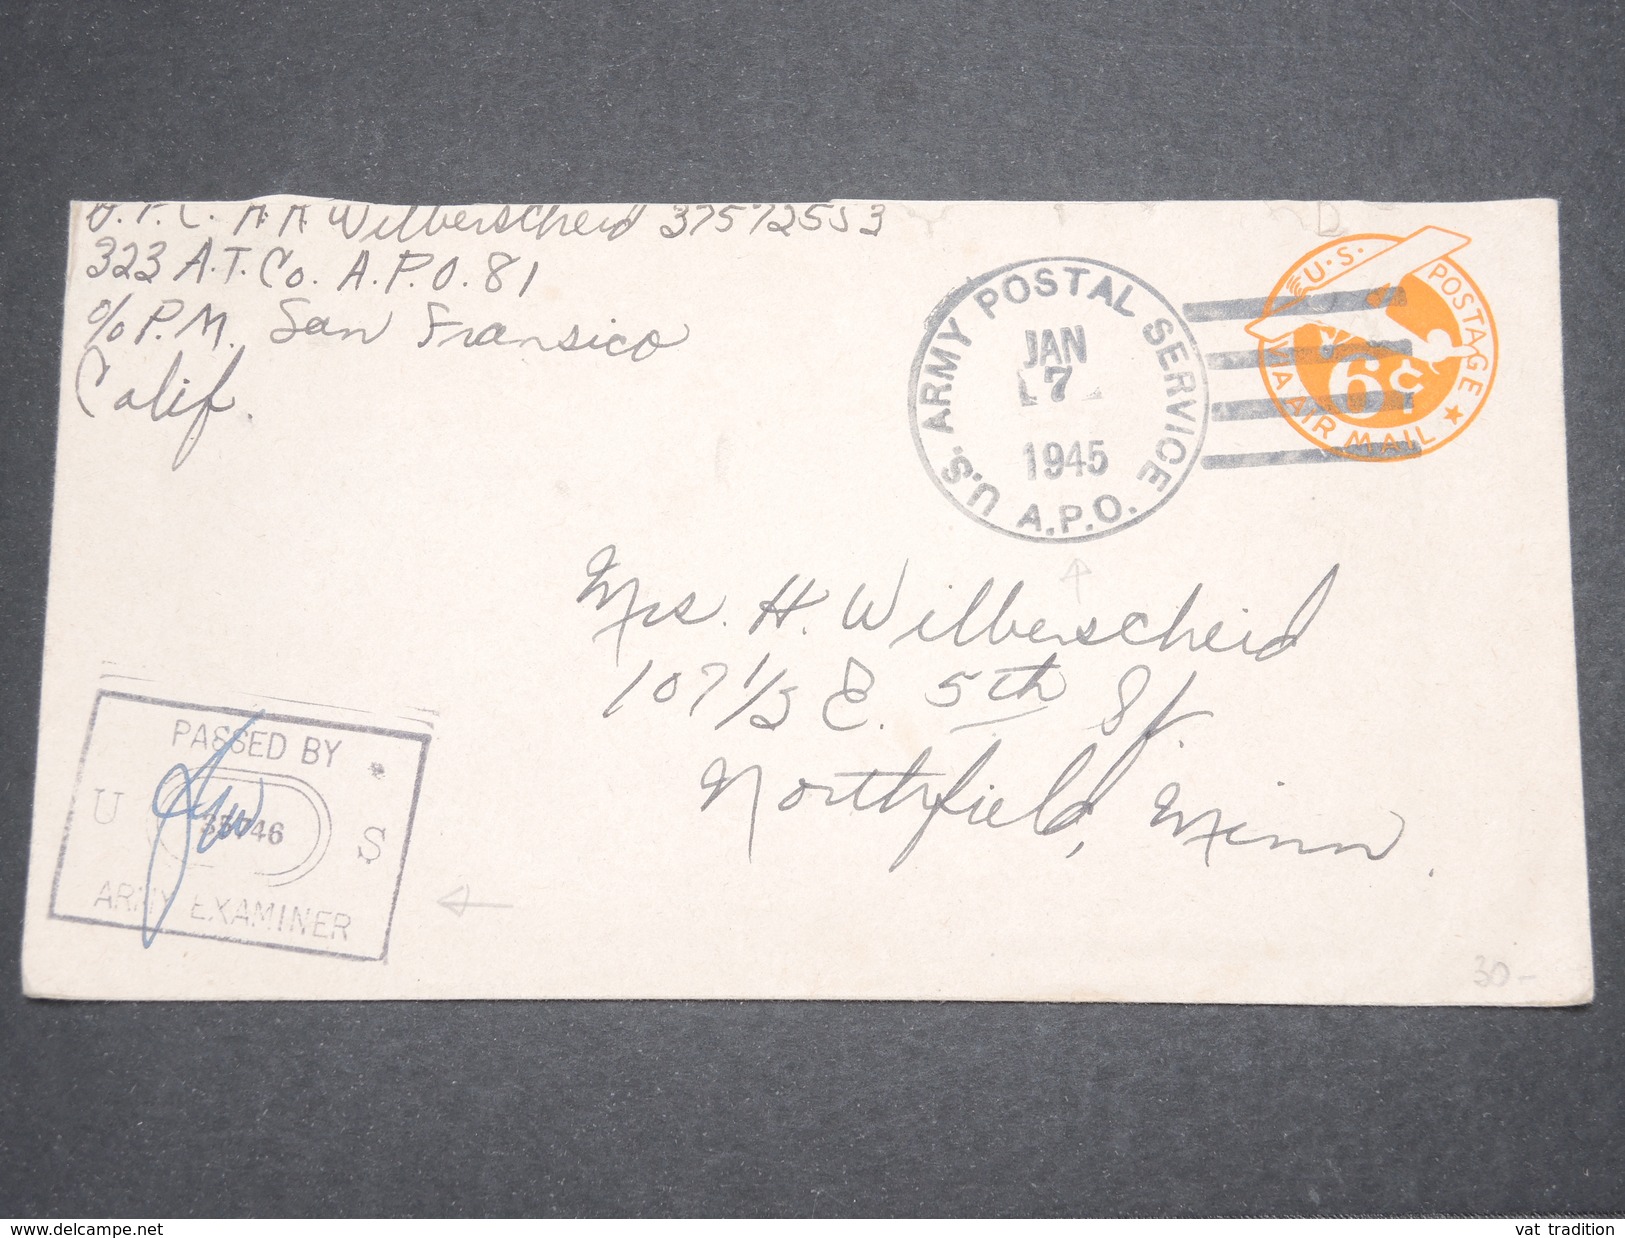 P.F.C. A A Wilberscheid 37572553
323 A.T. Co. A.P.O. 81
c/o P.M. San Fransico
Calif.
U.S. ARMY POSTAL SERVICE
JAN
7
1945
A.P.O.
U.S. POSTAGE
6¢
VIA AIR MAIL
Mrs. H. Wilberscheid
107 1/2 E. 5th St.
Northfield, Minn.
PASSED BY
U S
ARMY EXAMINER
30-
delcampe.net
vat tradition